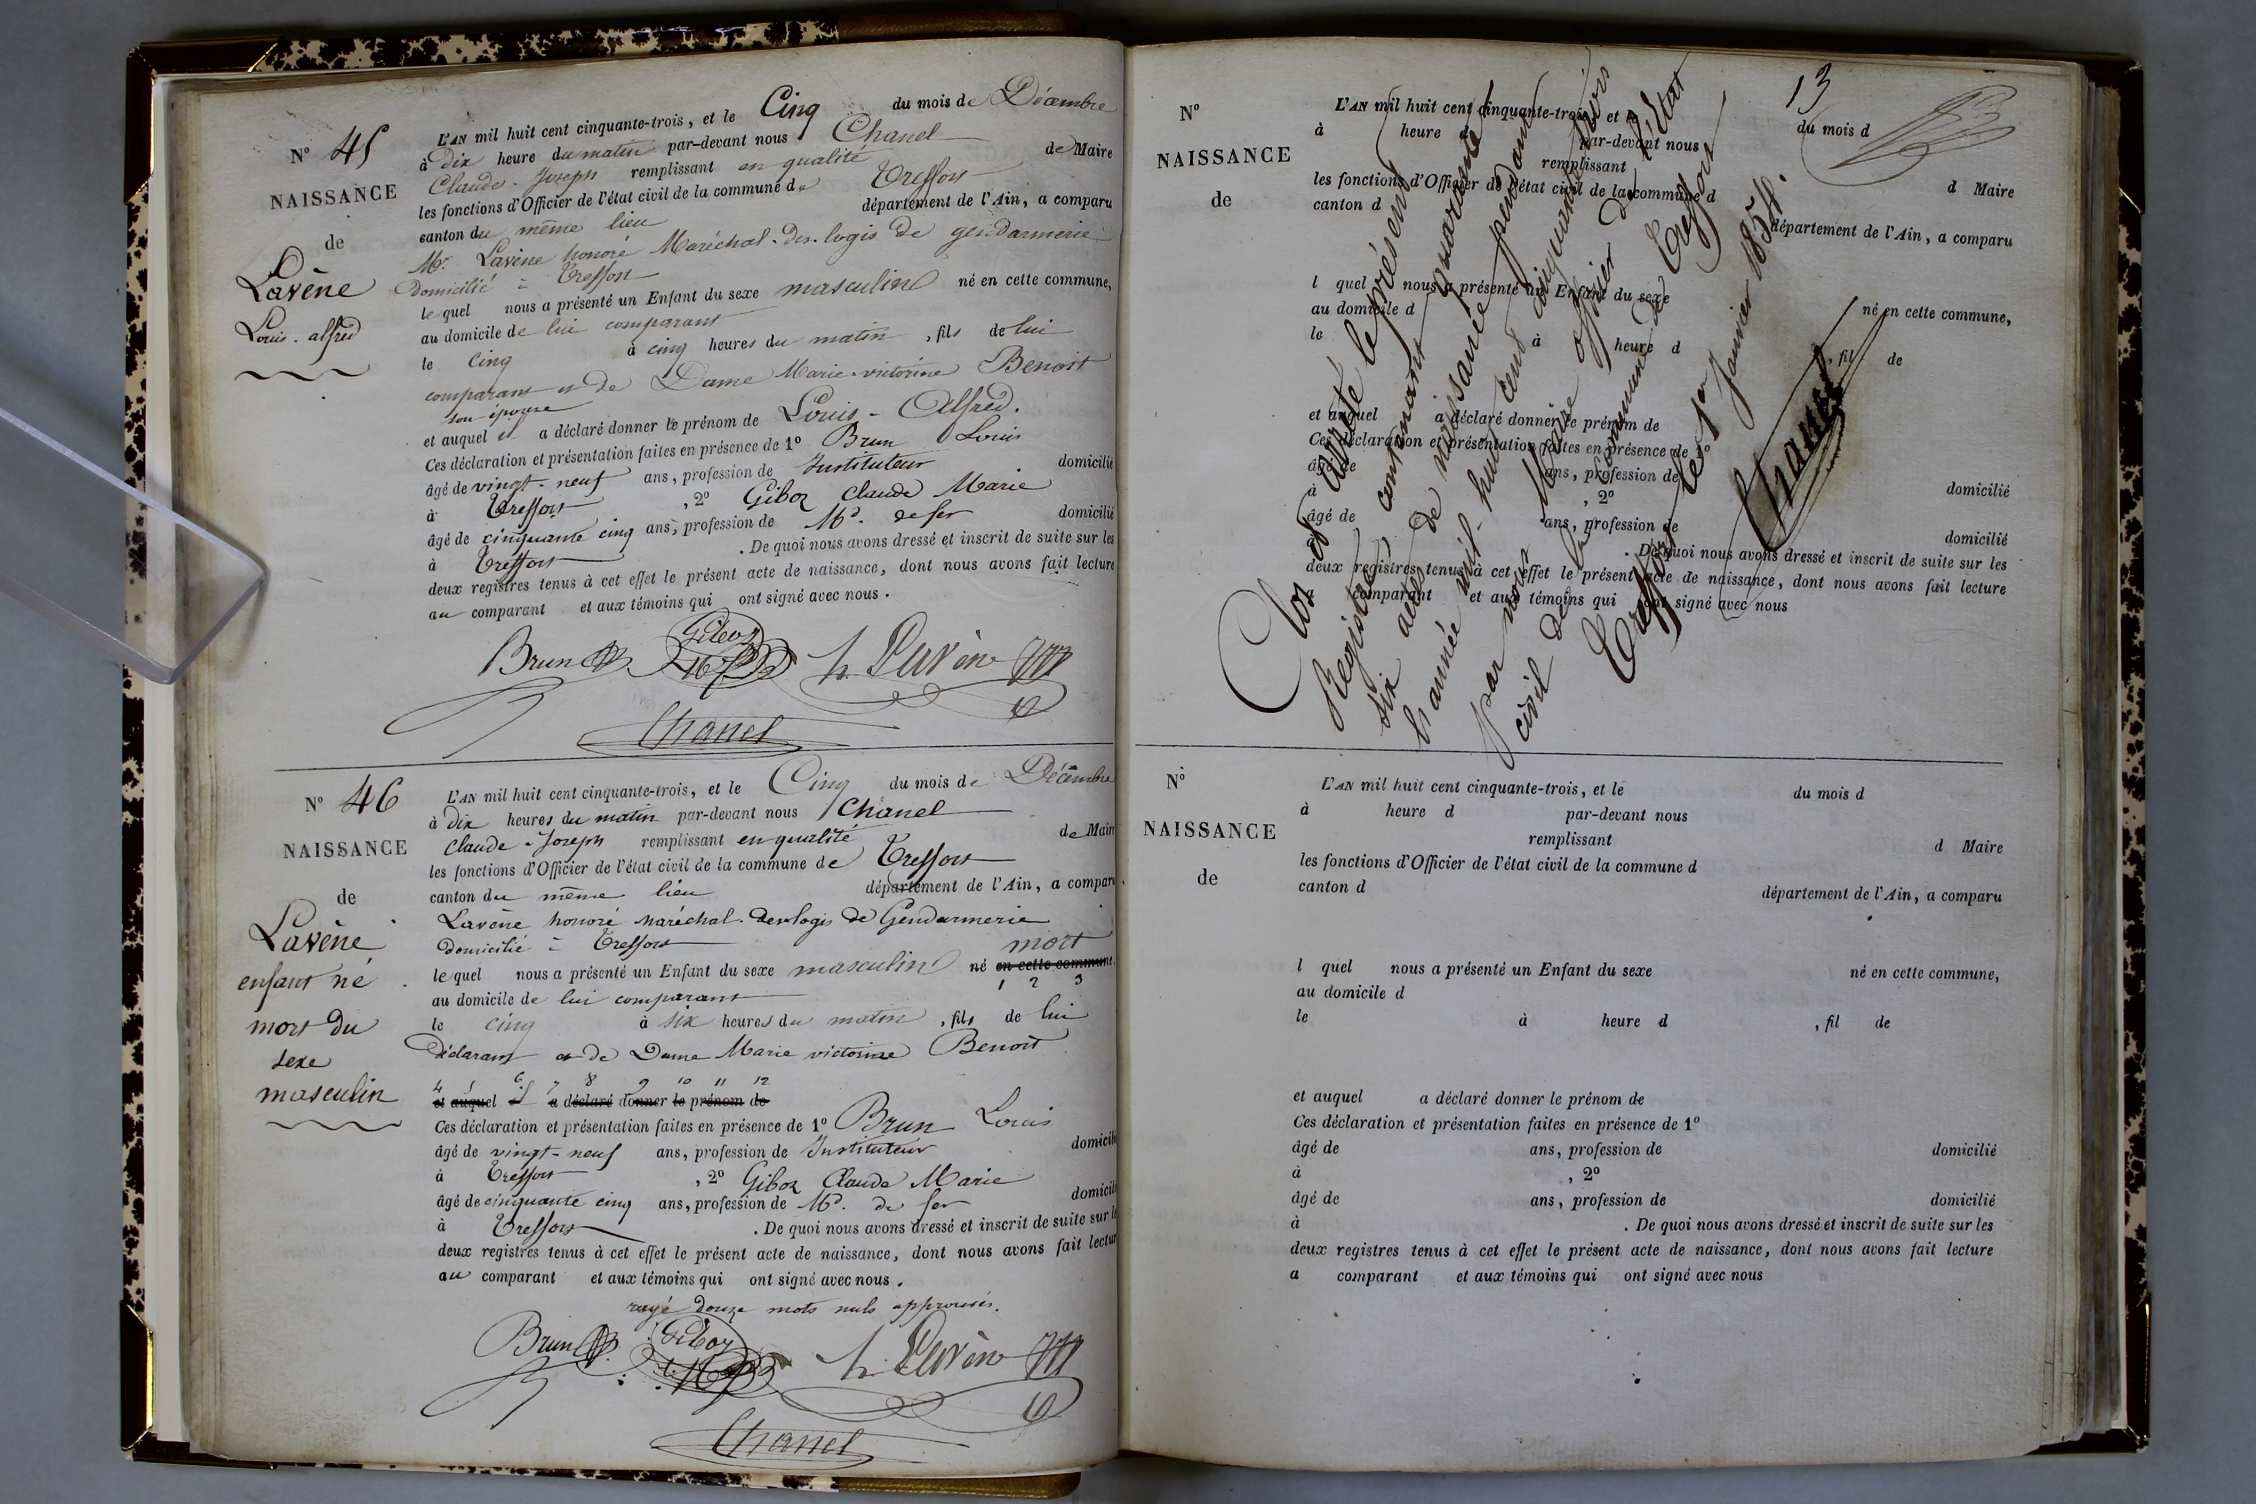 N° 45
NAISSANCE
de
Lavêne
Louis-alfred
L'AN mil huit cent cinquante-trois, et le Cinq du mois de Décembre
à Dix heure du matin par-devant nous Chanel
Claude-Joseph remplissant en qualité de Maire
les fonctions d'Officier de l'état civil de la commune de Treffort
canton du même lieu département de l'Ain, a comparu
Mr. Lavêne honoré Maréchal-des-logis de gendarmerie
Domicilié à Treffort
le quel nous a présenté un Enfant du sexe masculin né en cette commune,
au domicile de lui comparant
le Cinq à cinq heures du matin, fils de lui
comparant et de Dame Marie-victorine Benoit
son épouse
et auquel il a déclaré donner le prénom de Louis-Alfred.
Ces déclaration et présentation faites en présence de 1° Brun Louis
âgé de vingt-neuf ans, profession de Instituteur domicilié
à Treffort, 2° Giboz Claude Marie
âgé de cinquante cinq ans, profession de Md. de fer domicilié
à Treffort. De quoi nous avons dressé et inscrit de suite sur les
deux registres tenus à cet effet le présent acte de naissance, dont nous avons fait lecture
au comparant et aux témoins qui ont signé avec nous.
Brun Giboz h. Lavêne
Chanel
N° 46
NAISSANCE
de
Lavêne
enfant né
mort du
sexe
masculin
L'AN mil huit cent cinquante-trois, et le Cinq du mois de Décembre
à Dix heures du matin par-devant nous Chanel
Claude-Joseph remplissant en qualité de Maire
les fonctions d'Officier de l'état civil de la commune de Treffort
canton du même lieu département de l'Ain, a comparu
Lavêne honoré maréchal-des-logis de Gendarmerie
Domicilié à Treffort mort
le quel nous a présenté un Enfant du sexe masculin né en cette commune
1 2 3
au domicile de lui comparant
le cinq à six heures du matin, fils de lui
Déclarant et de Dame Marie victorine Benoit
4 6 7 8 9 10 11 12
et auquel il a déclaré donner le prénom de
Ces déclaration et présentation faites en présence de 1° Brun Louis
âgé de vingt-neuf ans, profession de Instituteur domicilié
à Treffort, 2° Giboz Claude Marie
âgé de cinquante cinq ans, profession de Md. de fer domicilié
à Treffort. De quoi nous avons dressé et inscrit de suite sur les
deux registres tenus à cet effet le présent acte de naissance, dont nous avons fait lecture
au comparant et aux témoins qui ont signé avec nous.
rayé douze mots nuls approuvés.
Brun Giboz h. Lavêne
Chanel
13
N°
NAISSANCE
de
L'AN mil huit cent cinquante-trois, et le du mois d
à heure d par-devant nous
remplissant d Maire
les fonctions d'Officier de l'état civil de la commune d
canton d département de l'Ain, a comparu
l quel nous a présenté un Enfant du sexe né en cette commune,
au domicile d
le à heure d , fil de
et auquel a déclaré donner le prénom de
Ces déclaration et présentation faites en présence de 1°
âgé de ans, profession de domicilié
à , 2°
âgé de ans, profession de domicilié
à . De quoi nous avons dressé et inscrit de suite sur les
deux registres tenus à cet effet le présent acte de naissance, dont nous avons fait lecture
a comparant et aux témoins qui ont signé avec nous
Clos et arrêté le présent
Registre contenant quarante
six actes de naissance pendant
l'année mil-huit cent cinquante trois
par nous Maire officier de l'état
civil de la commune de Treffort
Treffort le 1er Janvier 1854.
Chanel
N°
NAISSANCE
de
L'AN mil huit cent cinquante-trois, et le du mois d
à heure d par-devant nous
remplissant d Maire
les fonctions d'Officier de l'état civil de la commune d
canton d département de l'Ain, a comparu
l quel nous a présenté un Enfant du sexe né en cette commune,
au domicile d
le à heure d , fil de
et auquel a déclaré donner le prénom de
Ces déclaration et présentation faites en présence de 1°
âgé de ans, profession de domicilié
à , 2°
âgé de ans, profession de domicilié
à . De quoi nous avons dressé et inscrit de suite sur les
deux registres tenus à cet effet le présent acte de naissance, dont nous avons fait lecture
a comparant et aux témoins qui ont signé avec nous